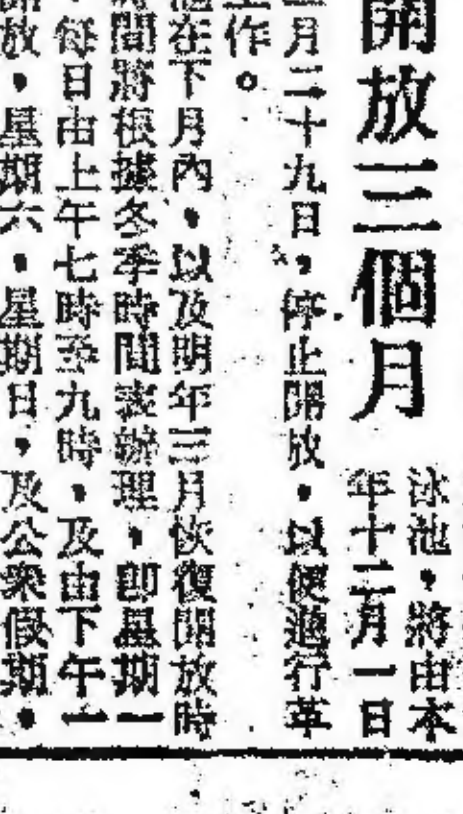 開放三個月
泳池，將由本
年十二月一日
月二十九日，停止開放，以便進行革
作。
池在下月內，以及明年三月恢復開放時
間將根據冬季時間表辦理，即星期一
每日由上午七時至九時，及由下午一
開放，星期六，星期日，及公眾假期，